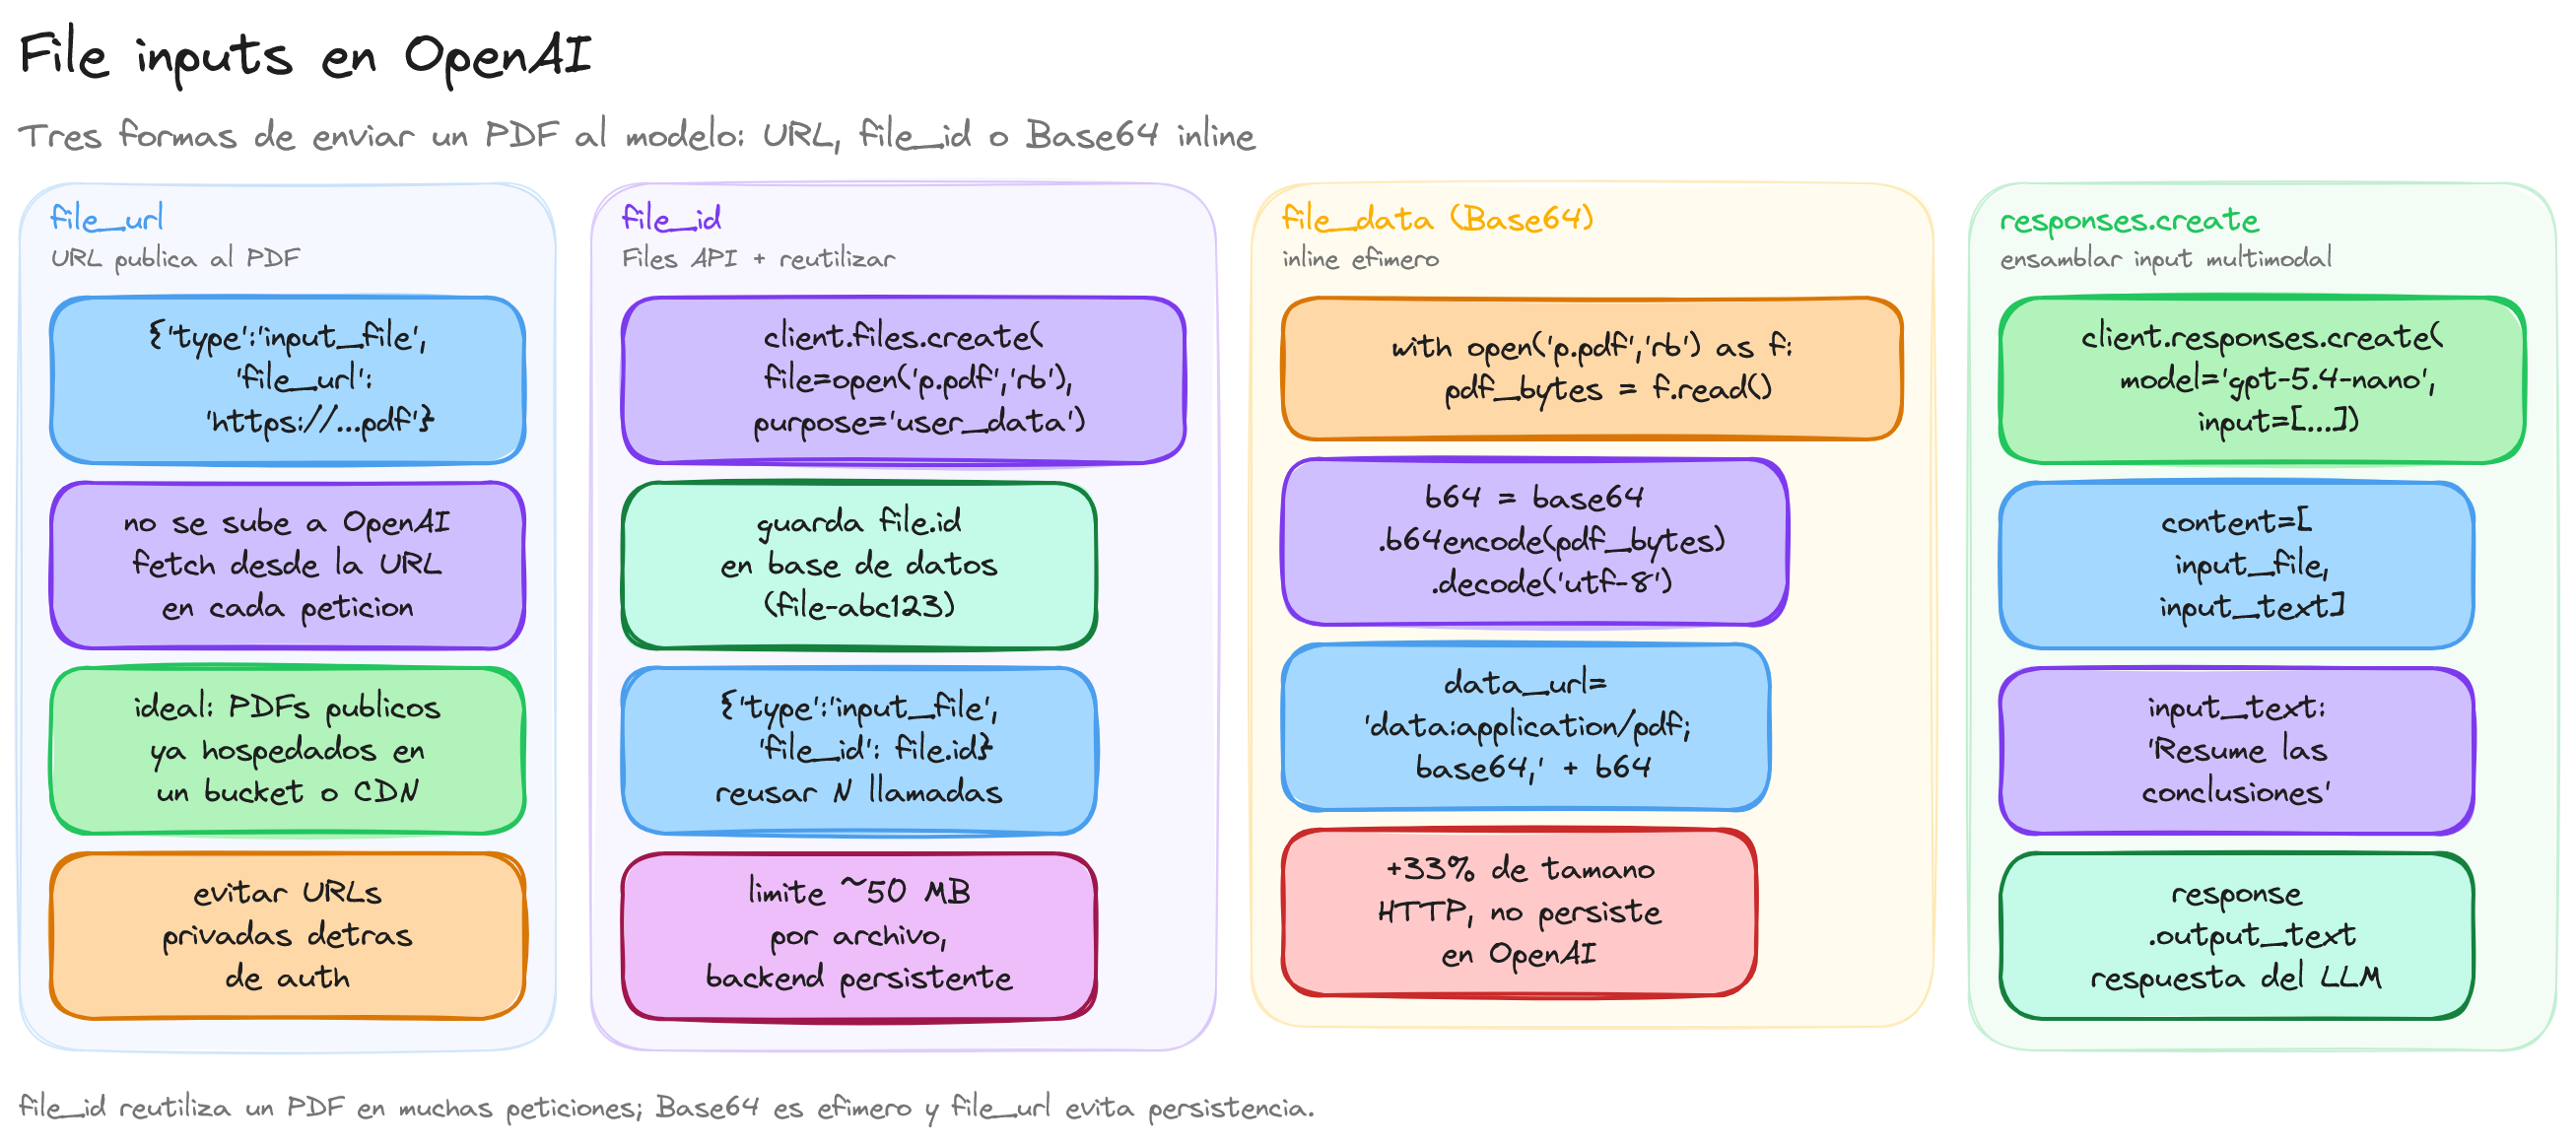 File inputs en OpenAI
Tres formas de enviar un PDF al modelo: URL, file_id o Base64 inline
file_url
URL publica al PDF
{'type':'input_file',
'file_url':
'https://...pdf'}
no se sube a OpenAI
fetch desde la URL
en cada peticion
ideal: PDFs publicos
ya hospedados en
un bucket o CDN
evitar URLs
privadas detras
de auth
file_id
Files API + reutilizar
client.files.create(
file=open('p.pdf','rb'),
purpose='user_data')
guarda file.id
en base de datos
(file-abc123)
{'type':'input_file',
'file_id': file.id}
reusar N llamadas
limite ~50 MB
por archivo,
backend persistente
file_data (Base64)
inline efimero
with open('p.pdf','rb') as f:
pdf_bytes = f.read()
b64 = base64
.b64encode(pdf_bytes)
.decode('utf-8')
data_url=
'data:application/pdf;
base64,' + b64
+33% de tamano
HTTP, no persiste
en OpenAI
responses.create
ensamblar input multimodal
client.responses.create(
model='gpt-5.4-nano',
input=[...])
content=[
input_file,
input_text]
input_text:
'Resume las
conclusiones'
response
.output_text
respuesta del LLM
file_id reutiliza un PDF en muchas peticiones; Base64 es efimero y file_url evita persistencia.